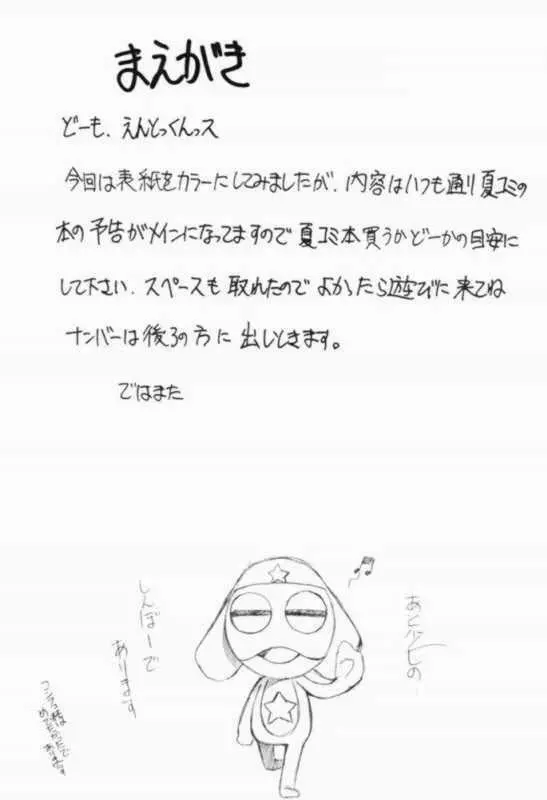 まえがき
どーも、えんとっくんっス
今回は表紙をカラーにしてみましたが、内容はいつも通り夏コミの
本の予告がメインになってますので夏コミ本買うかどーかの目安に
して下さい。スペースも取れたのでよかったら遊びに来てね
ナンバーは後ろの方に出しときます。
ではまた
あと少しの
しんぼーで
あります
めでたかったで
あります